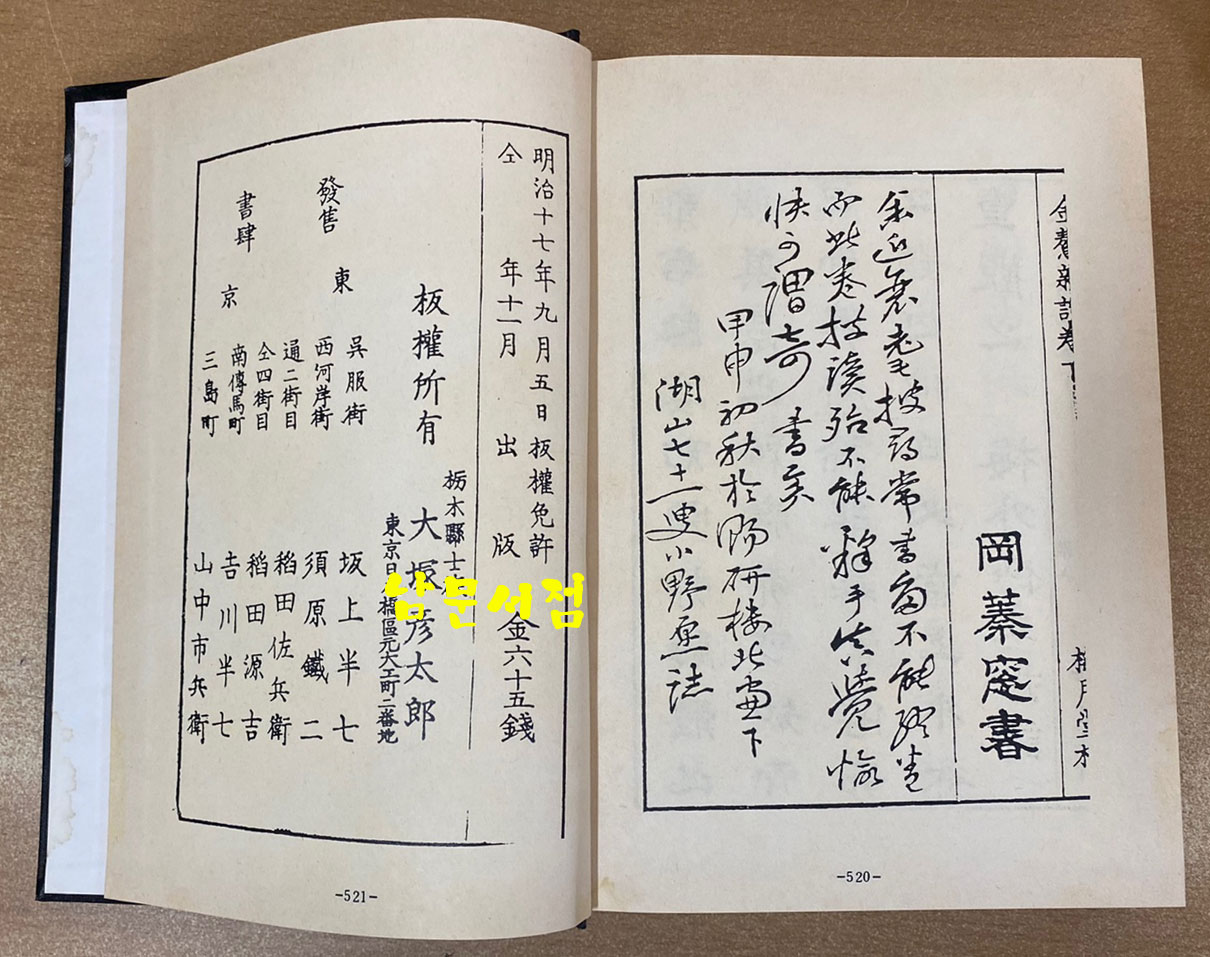 金鰲新話卷下
梅月堂
岡蓁窓書
余近衰耄披尋常書尚不能終卷
而此卷披讀殆不能釋手覺愉
快可謂奇書矣
甲申初秋於賜研樓北窗下
湖山七十一叟小野愿誌
-520-
明治十七年九月五日板權免許
仝年十一月出版 金六十五錢
栃木縣士
板權所有 大塚彦太郎
東京日橋區元大工町二番地
發售
書肆
東京
吳服街 坂上半七
西河岸街 須原鐵二
通二街目 稻田佐兵衛
仝四街目 稻田源吉
南傳馬町 吉川半七
三島町 山中市兵衛
-521-
남문서점